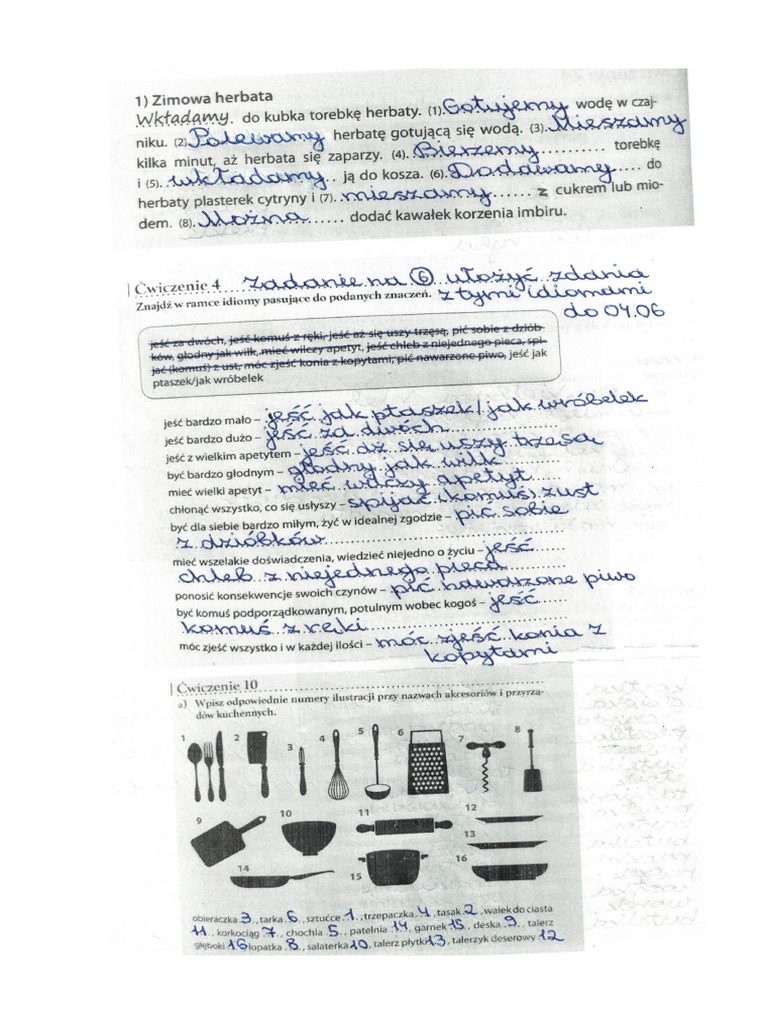 1) Zimowa herbata
Wkładamy do kubka torebkę herbaty. (1) Gotujemy wodę w czaj-
niku. (2) Polewamy herbatę gotującą się wodą. (3) Mieszamy
kilka minut, aż herbata się zaparzy. (4) Bierzemy torebkę
i (5) wkładamy ją do kosza. (6) Dodawamy do
herbaty plasterek cytryny i (7) mieszamy z cukrem lub mio-
dem. (8) Można dodać kawałek korzenia imbiru.
Ćwiczenie 4 Zadanie na 6 ułożyć zdania
Znajdź w ramce idiomy pasujące do podanych znaczeń. z tymi idiomami
do 04.06
jeść za dwóch, jeść komuś z ręki, jeść aż się uszy trzęsą, pić sobie z dziób-
ków, głodny jak wilk, mieć wilczy apetyt, jeść chleb z niejednego pieca, spi-
jać (komuś) z ust, móc zjeść konia z kopytami, pić nawarzone piwo, jeść jak
ptaszek/jak wróbelek
jeść bardzo mało – jeść jak ptaszek / jak wróbelek
jeść bardzo dużo – jeść za dwóch
jeść z wielkim apetytem – jeść aż się uszy trzęsą
być bardzo głodnym – głodny jak wilk
mieć wielki apetyt – mieć wilczy apetyt
chłonąć wszystko, co się usłyszy – spijać (komuś) z ust
być dla siebie bardzo miłym, żyć w idealnej zgodzie – pić sobie
z dzióbków
mieć wszelakie doświadczenia, wiedzieć niejedno o życiu – jeść
chleb z niejednego pieca
ponosić konsekwencje swoich czynów – pić nawarzone piwo
być komuś podporządkowanym, potulnym wobec kogoś – jeść
komuś z ręki
móc zjeść wszystko i w każdej ilości – móc zjeść konia z
kopytami
Ćwiczenie 10
a) Wpisz odpowiednie numery ilustracji przy nazwach akcesoriów i przyrzą-
dów kuchennych.
1 2 3 4 5 6 7 8
9 10 11 12
13
14 15 16
obieraczka 3, tarka 6, sztućce 1, trzepaczka 4, tasak 2, wałek do ciasta
11, korkociąg 7, chochla 5, patelnia 14, garnek 15, deska 9, talerz
głęboki 16 łopatka 8, salaterka 10, talerz płytki 13, talerzyk deserowy 12